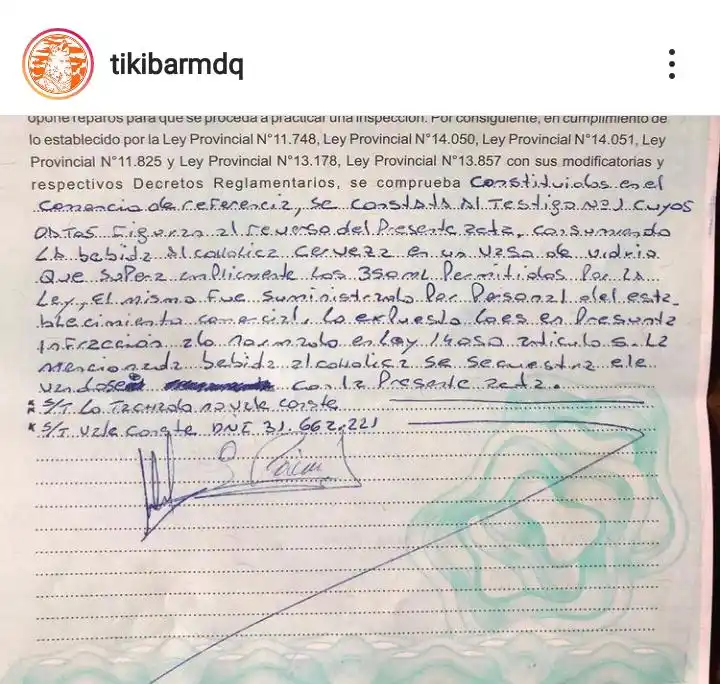 tikibarmdq
opone reparos para que se proceda a practicar una inspección. Por consiguiente, en cumplimiento de
lo establecido por la Ley Provincial N°11.748, Ley Provincial N°14.050, Ley Provincial N°14.051, Ley
Provincial N°11.825 y Ley Provincial N°13.178, Ley Provincial N°13.857 con sus modificatorias y
respectivos Decretos Reglamentarios, se comprueba Constituidos en el
comercio de referencia, se constata Al Testigo No 1 cuyos
DATOS Figuran al reverso del Presente acta, consumiendo
LA bebida Alcoholica cerveza en un vaso de vidrio
Que supera ampliamente los 350 ml Permitidos Por LA
Ley, El mismo fue suministrado Por Personal del esta_
blecimiento comercial, lo expuesto lo es en Presunta
Infracción a lo normado en Ley 14050 articulo 5. La
mencionada bebida alcoholica se secuestra ele
vandose con la Presente acta.
* S/T Lo Tachado no vale conste
* S/T vale conste DNI 31.662.221